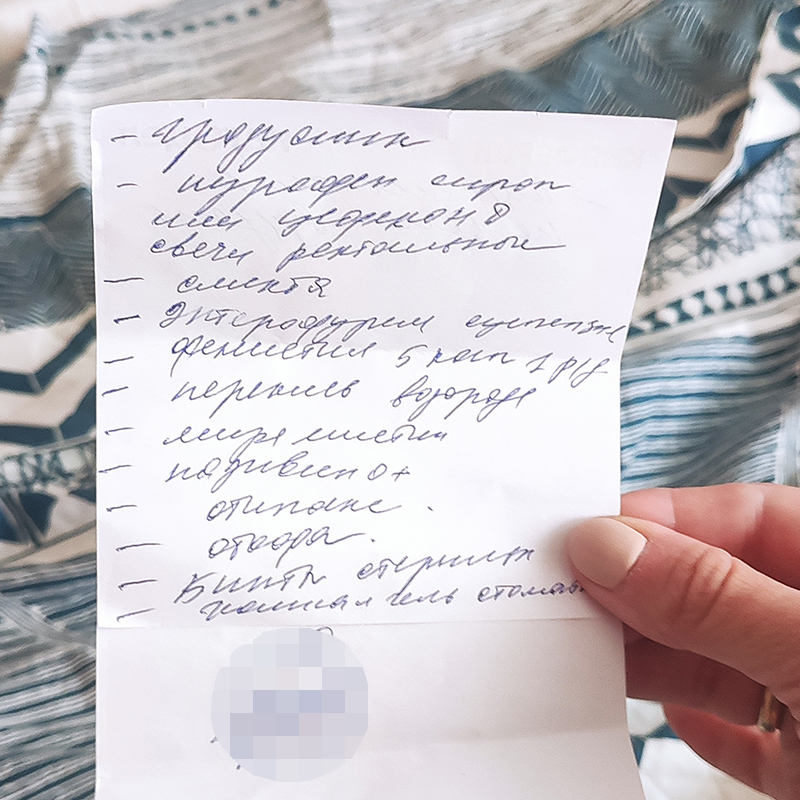 - Грудусник
- нурофен сироп
или цефекон д
свечи ректальные
- смекта
- Энтерофурил суспензия
- фенистил 5 кап 1 р/д
- перекись водорода
- мирамистин
- називин 0+
- отипакс.
- отофа.
- Бинты стерильн
- холисал гель стомат